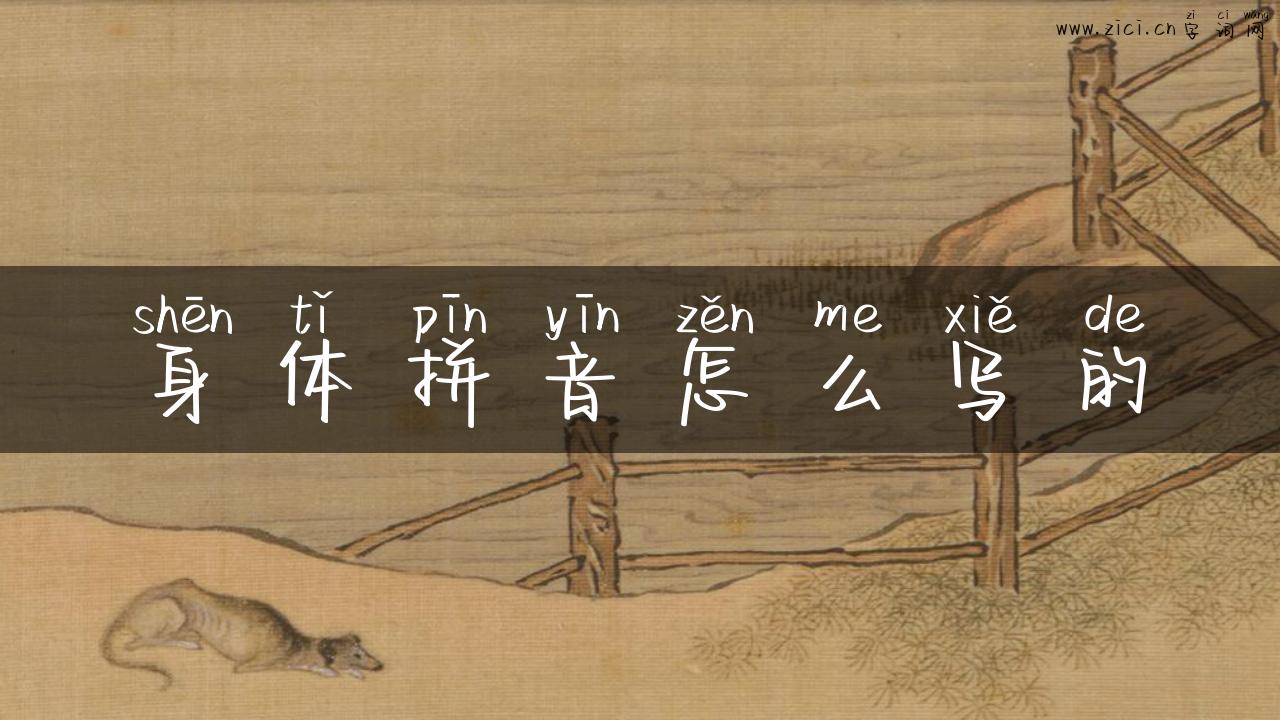 zi ci wang
www.zici.cn 字词网
shēn tǐ pīn yīn zěn me xiě de
身体拼音怎么写的